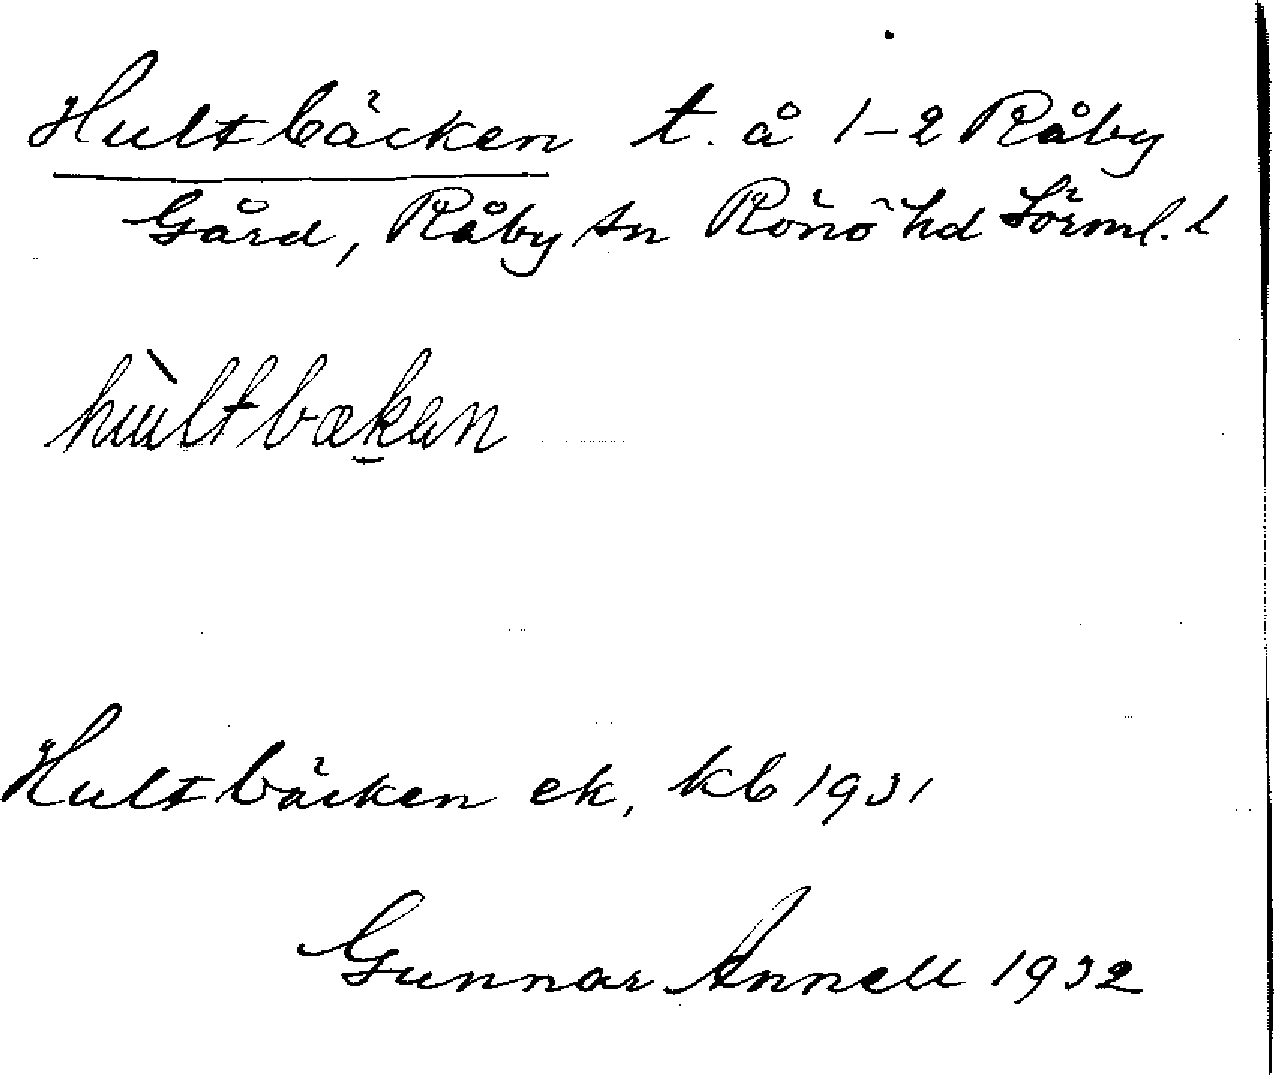 Hultbäcken t. å 1-2 Råby
Gård, Råby sn Rönö hd Sörml. l
hùltbækan
Hultbäcken ek, kb 1931
Gunnar Annell 1932